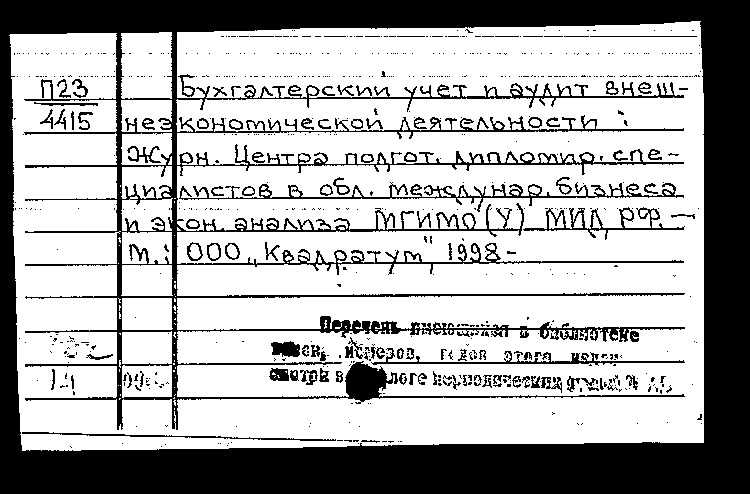 П23 Бухгалтерский учет и аудит внеш-
4415 неэкономической деятельности :
Журн. Центра подгот. дипломир. спе-
циалистов в обл. междунар. бизнеса
и экон. анализа МГИМО (У) МИД РФ. —
М.: ООО „Квадратум", 1998 -
Перечень имеющихся в библиотеке
номеров, годов этого
смотри в